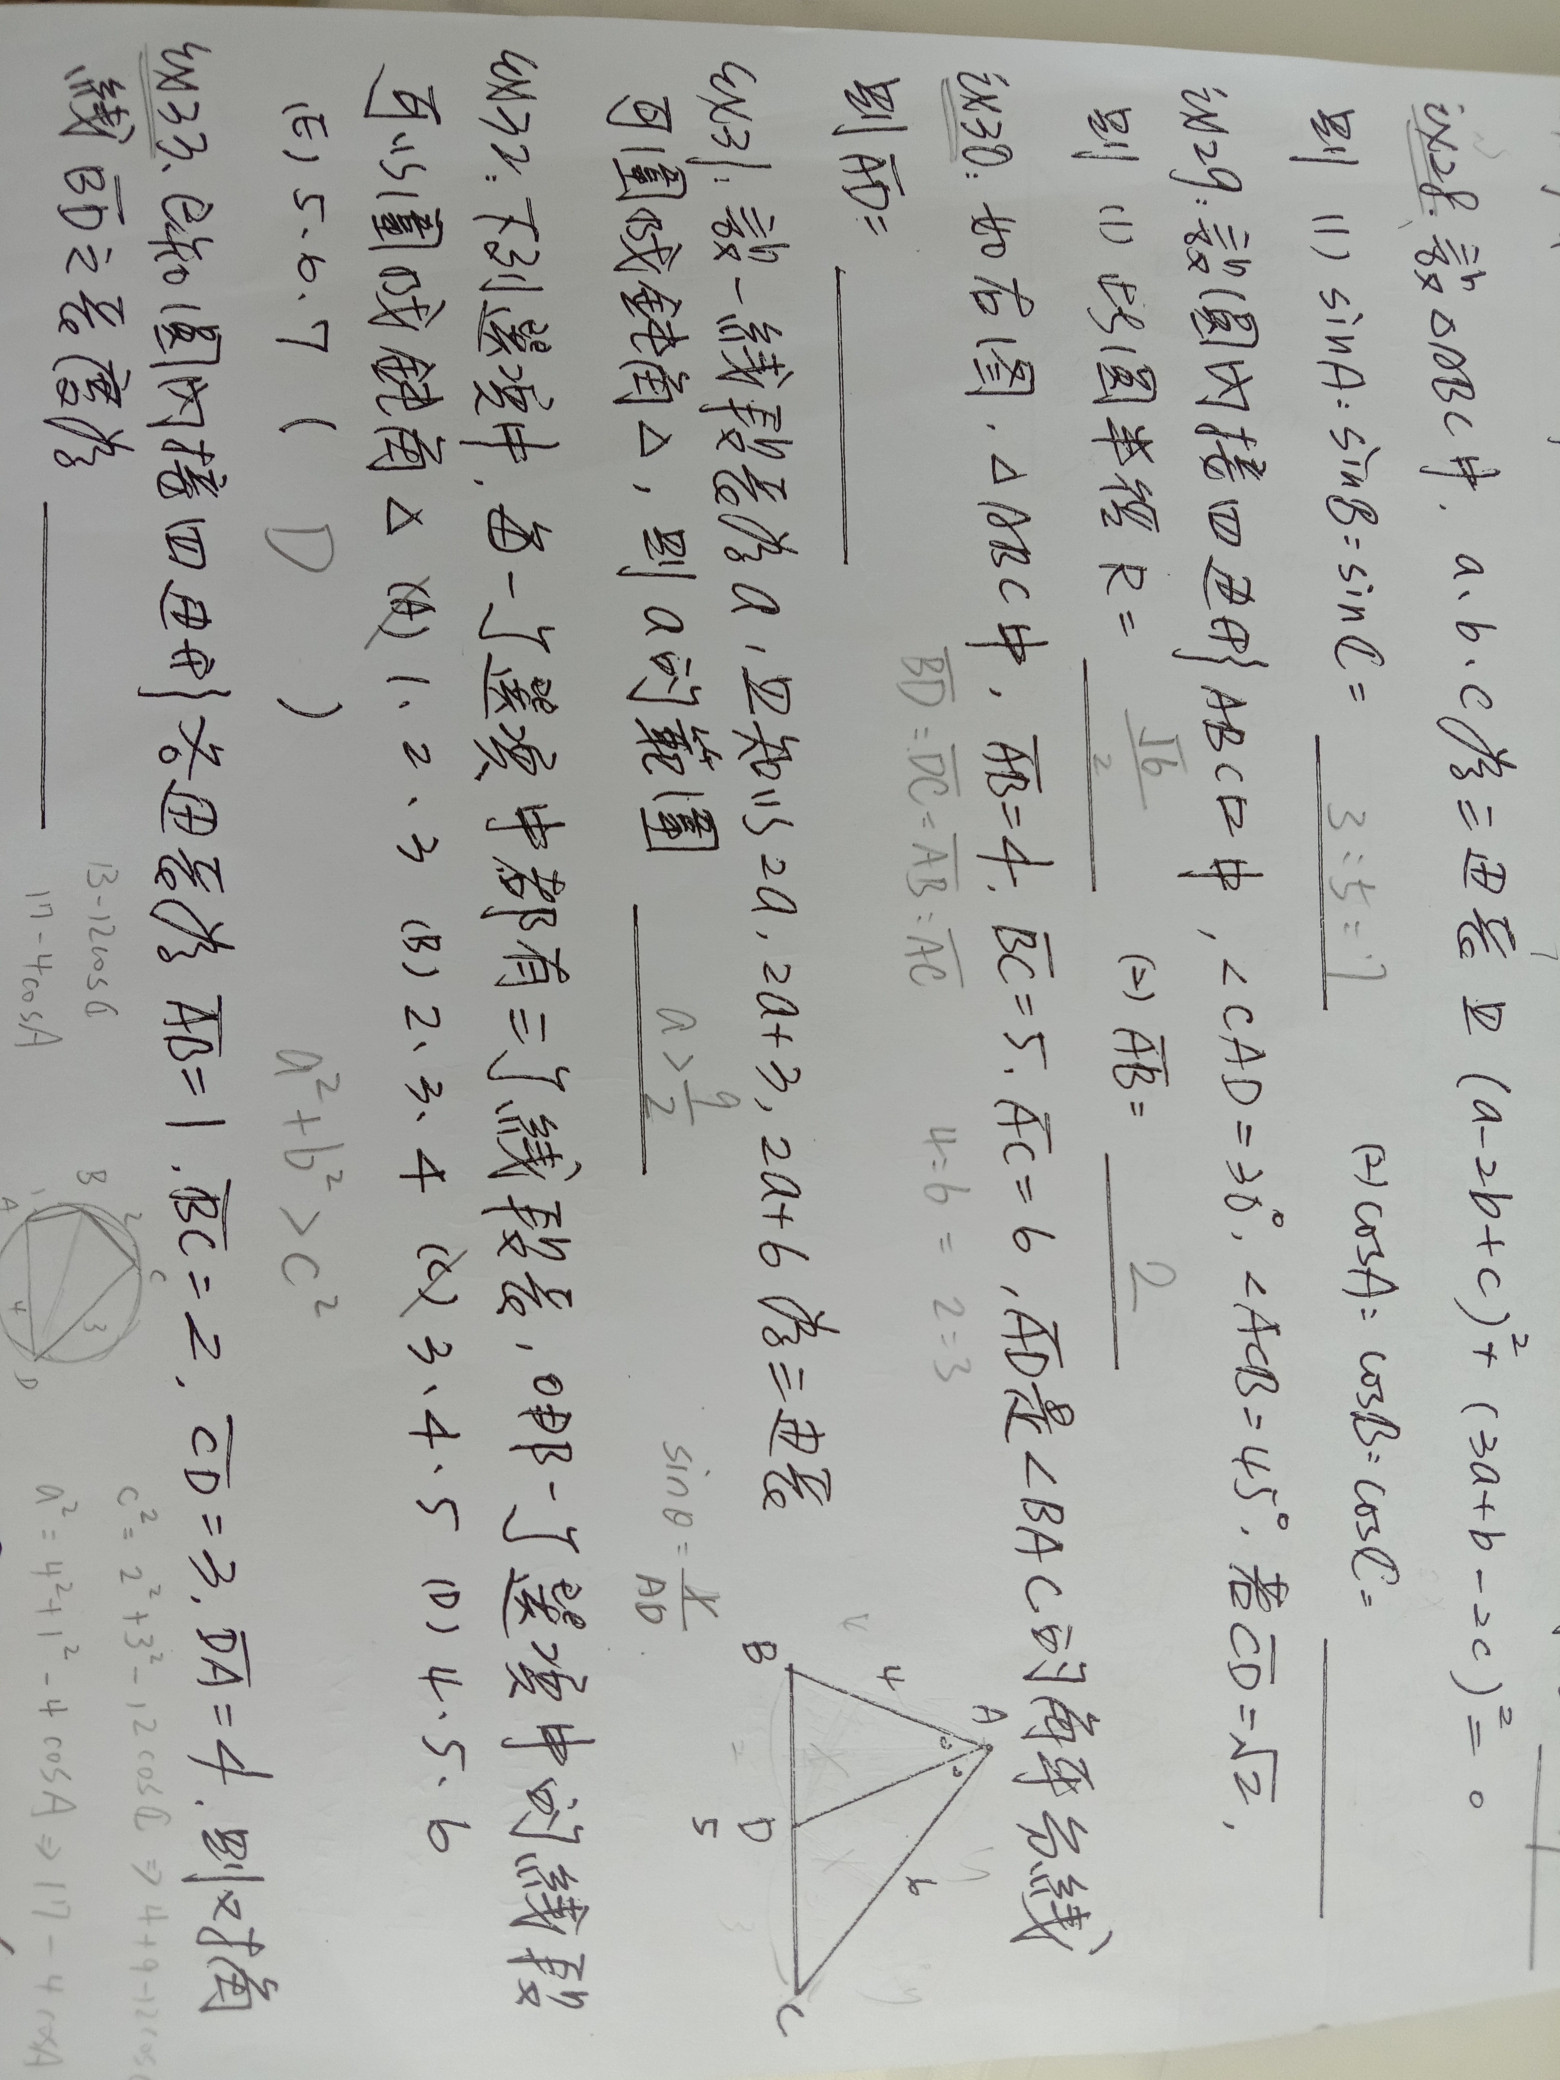 ex28: 設△ABC中, a、b、c為三边長 且 (a-2b+c)²+(3a+b-2c)²=0
則 (1) sinA:sinB:sinC= 3:5:7 (2) cosA:cosB:cosC=
ex29: 設圓內接四边形ABCD中, ∠CAD=30°, ∠ACB=45°, 若CD=√2,
則 (1) 此圓半徑 R= (2) AB= 2
ex30: 如右圖, △ABC中, AB=4, BC=5, AC=6, AD是∠BAC的角平分線
BD:DC=AB:AC 4:6=2:3
則AD=
A
4
6
B
D
C
5
ex31: 設一線段長為a, 且知以2a, 2a+3, 2a+6為三边長
sinθ=
AD
可圍成鈍角△, 則a的範圍 a>9/2
ex32: 下列選項中, 每一个選項中都有三个線段長, 哪一个選項中的線段
可以圍成鈍角△ (A) 1、2、3 (B) 2、3、4 (C) 3、4、5 (D) 4、5、6
(E) 5、6、7 ( D ) a²+b²>c²
ex33、已知圓內接四边形各边長為AB=1, BC=2, CD=3, DA=4, 則對角
線BD之長度為
13-12cosC
17-4cosA
B
2
C
1
3
A
4
D
c²=2²+3²-12cosC ⇒ 4+9-12cos
a²=4²+1²-4cosA ⇒ 17-4cosA